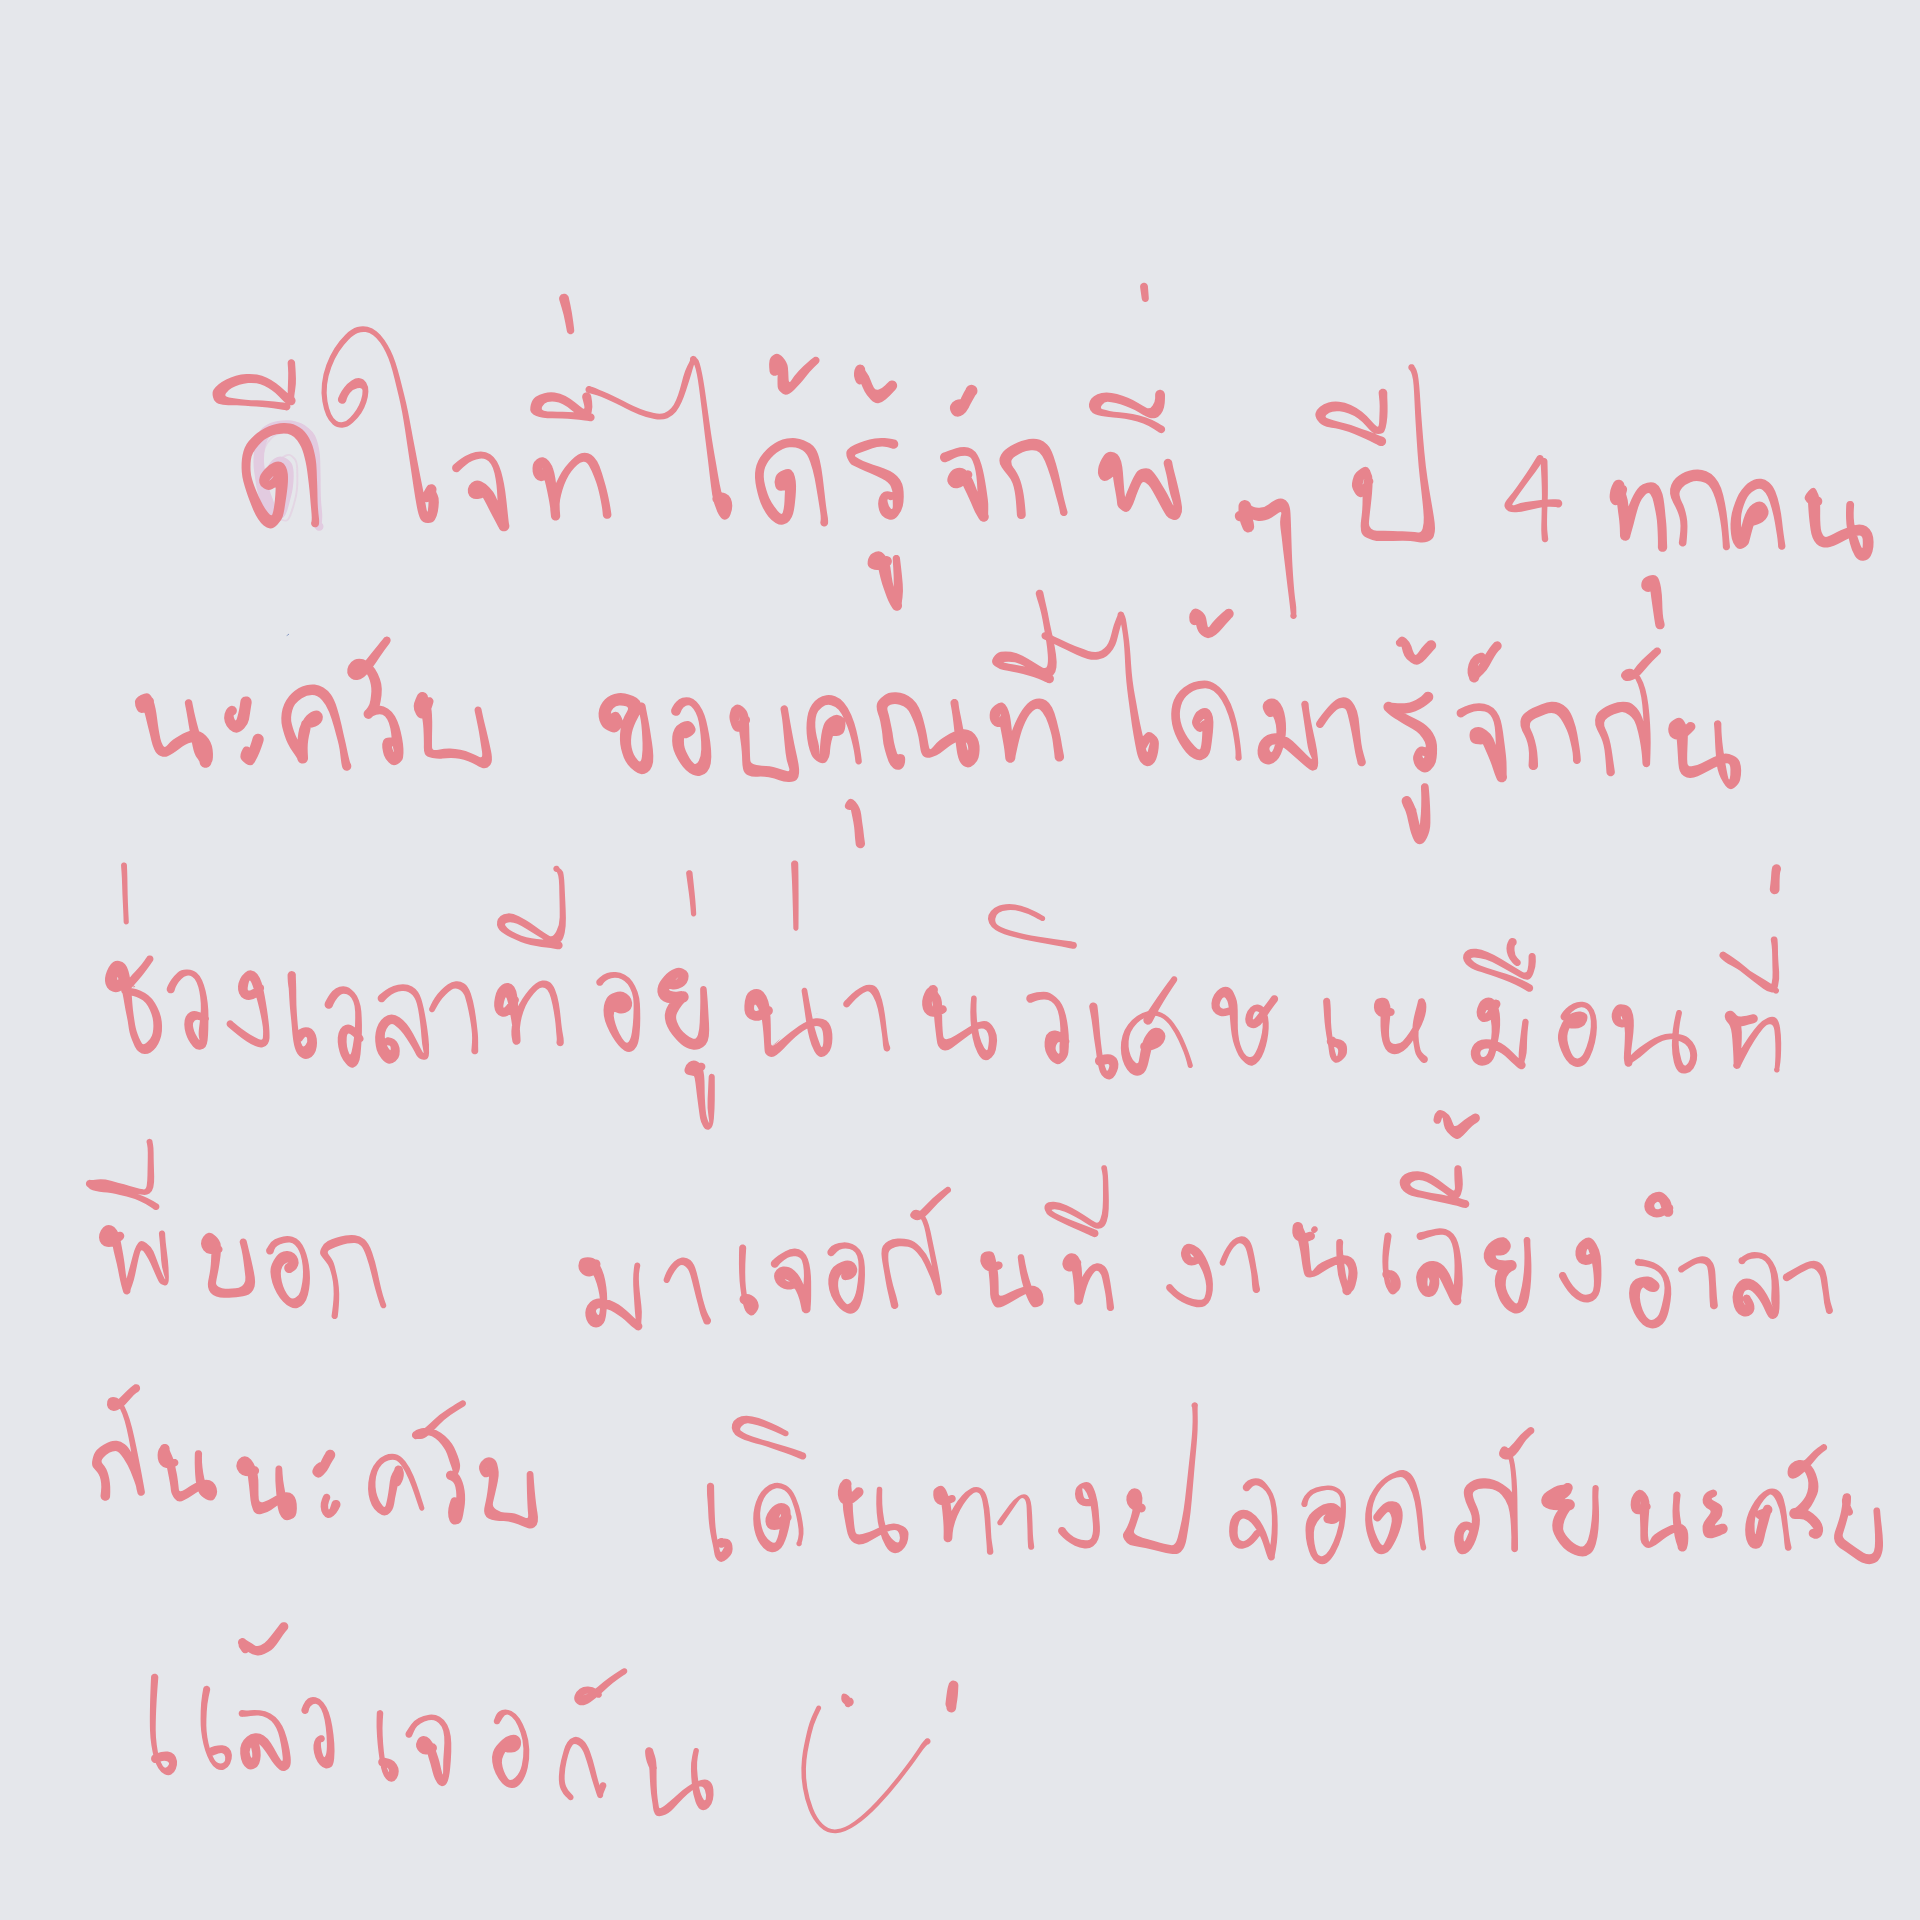 ดีใจที่ได้รู้จักพี่ๆ ปี 4 ทุกคน
นะครับ ขอบคุณที่ได้มารู้จักกัน
ช่วงเวลาที่อยู่น่าน วิเศษเหมือนที่
พี่บอก มาเจอกันที่งานเลี้ยงอำลา
กันนะครับ เดินทางปลอดภัยนะครับ
แล้วเจอกัน